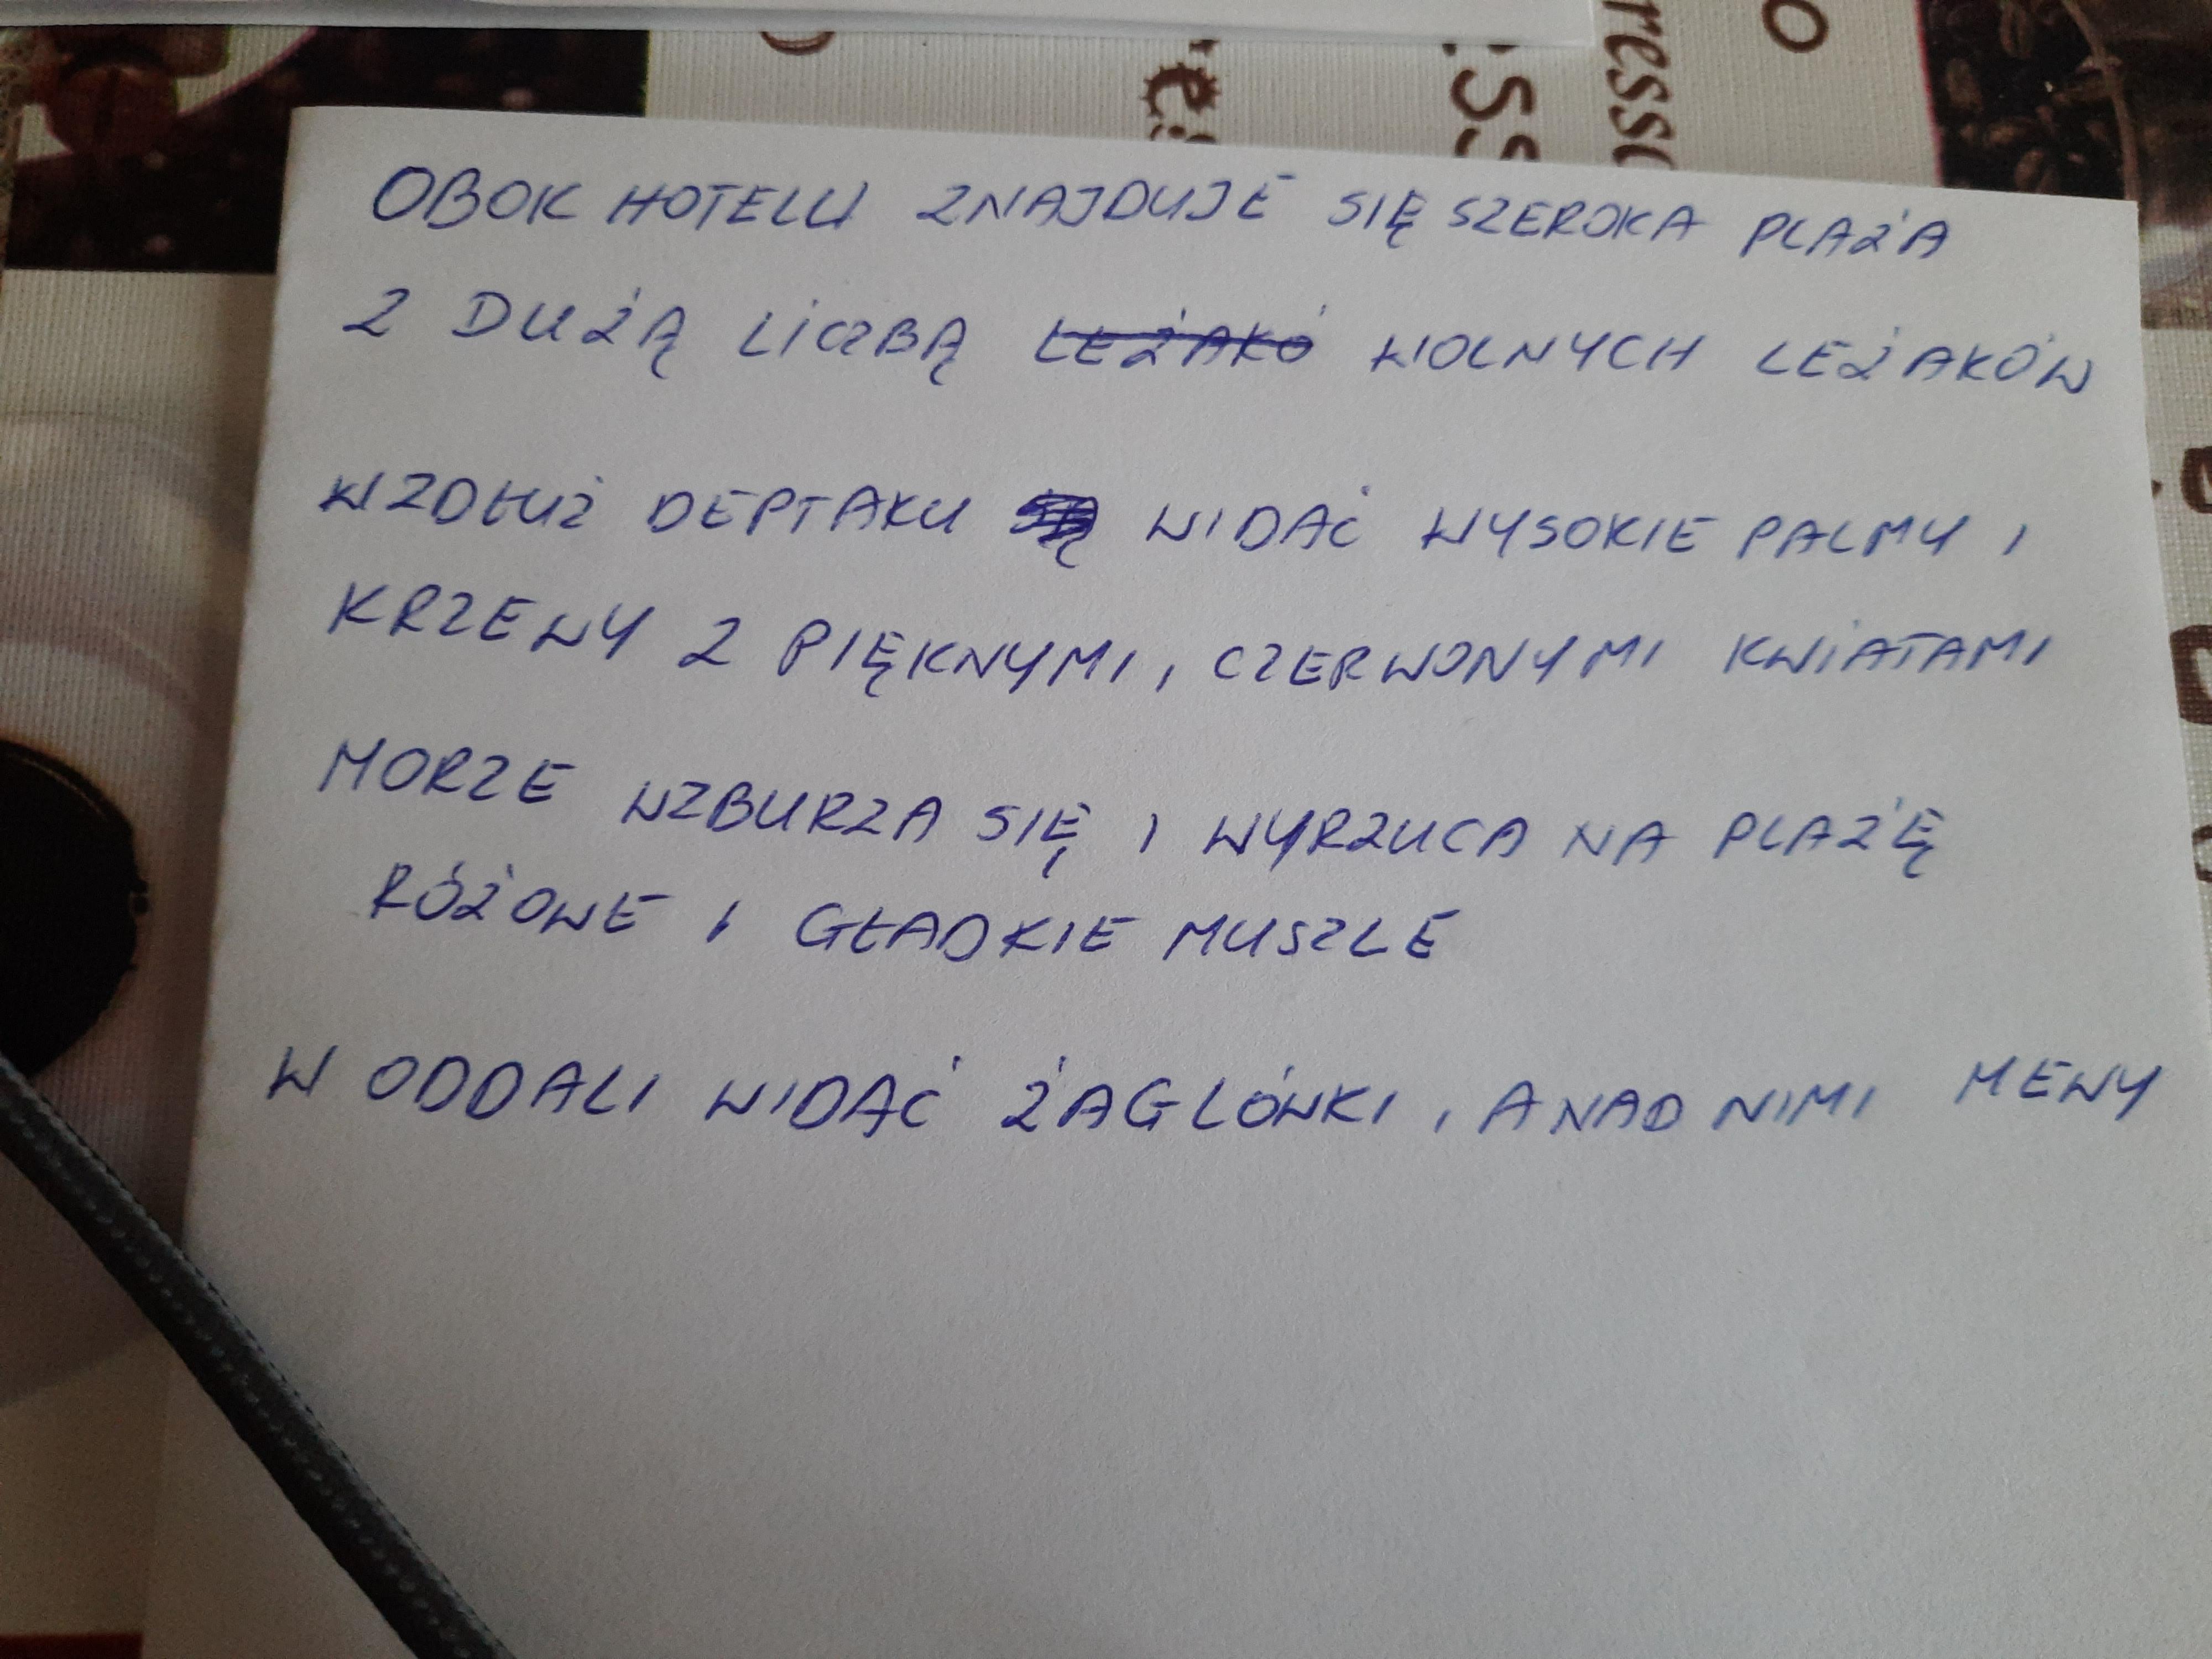 OBOK HOTELU ZNAJDUJE SIĘ SZEROKA PLAŻA
Z DUŻĄ LICZBĄ LEŻAKÓ WOLNYCH LEŻAKÓW
WZDŁUŻ DEPTAKU WIDAĆ WYSOKIE PALMY I
KRZEWY Z PIĘKNYMI, CZERWONYMI KWIATAMI
MORZE WZBURZA SIĘ I WYRZUCA NA PLAŻĘ
RÓŻOWE I GŁADKIE MUSZLE
W ODDALI WIDAĆ ŻAGLÓWKI, A NAD NIMI MEWY